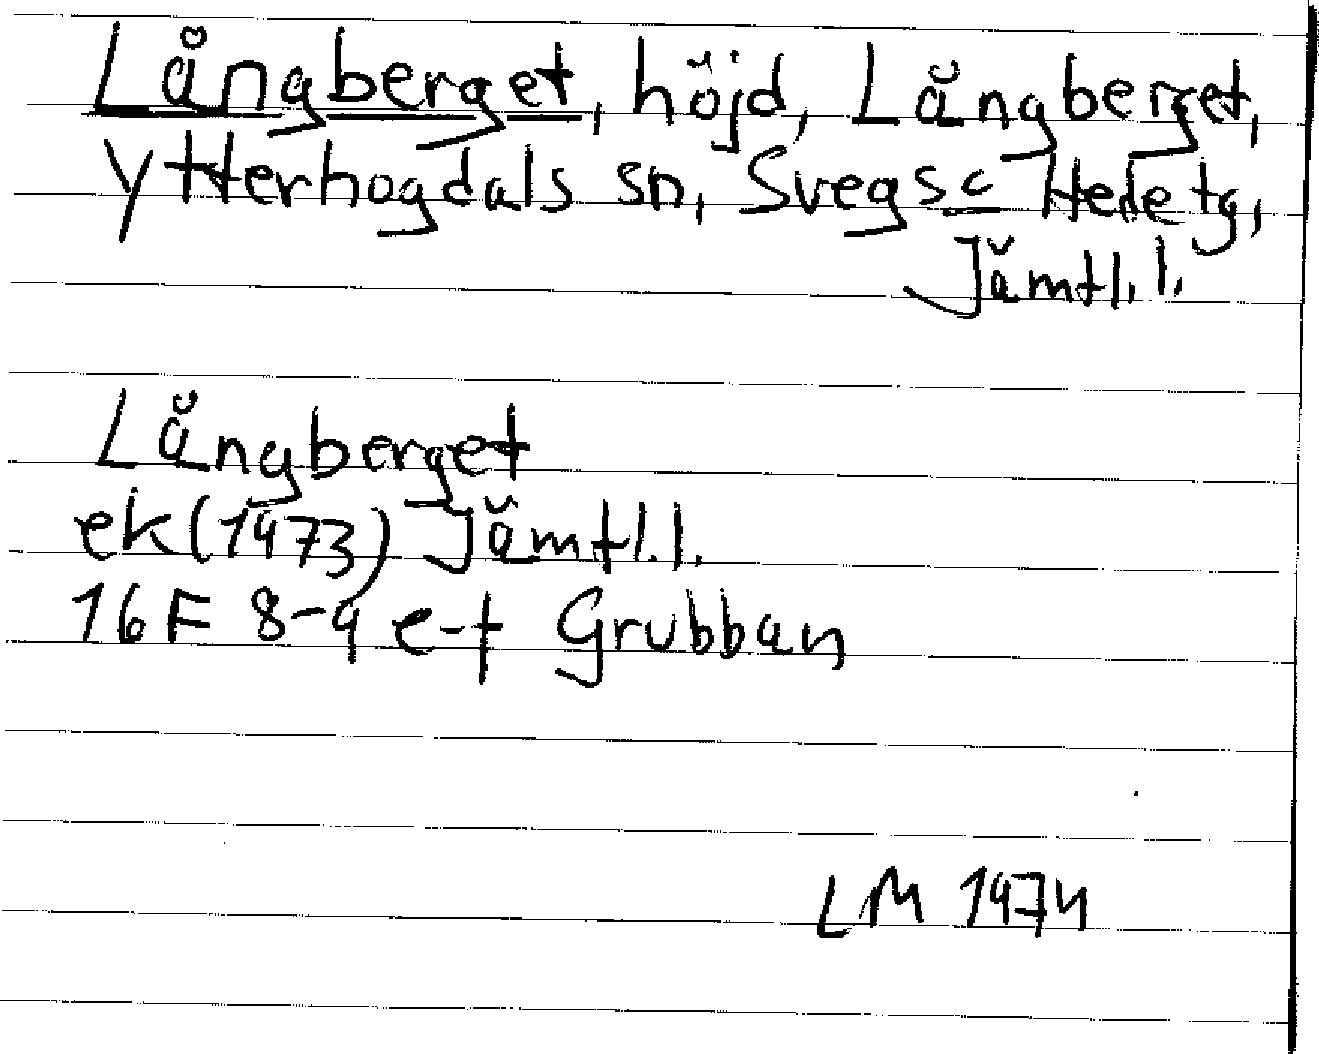 Långberget, höjd, Långberget,
Ytterhogdals sn, Svegs o Hede tg,
Jämtl. l.
Långberget
ek (1973) Jämtl. l.
16F 8-9 e-f Grubban
LM 1974